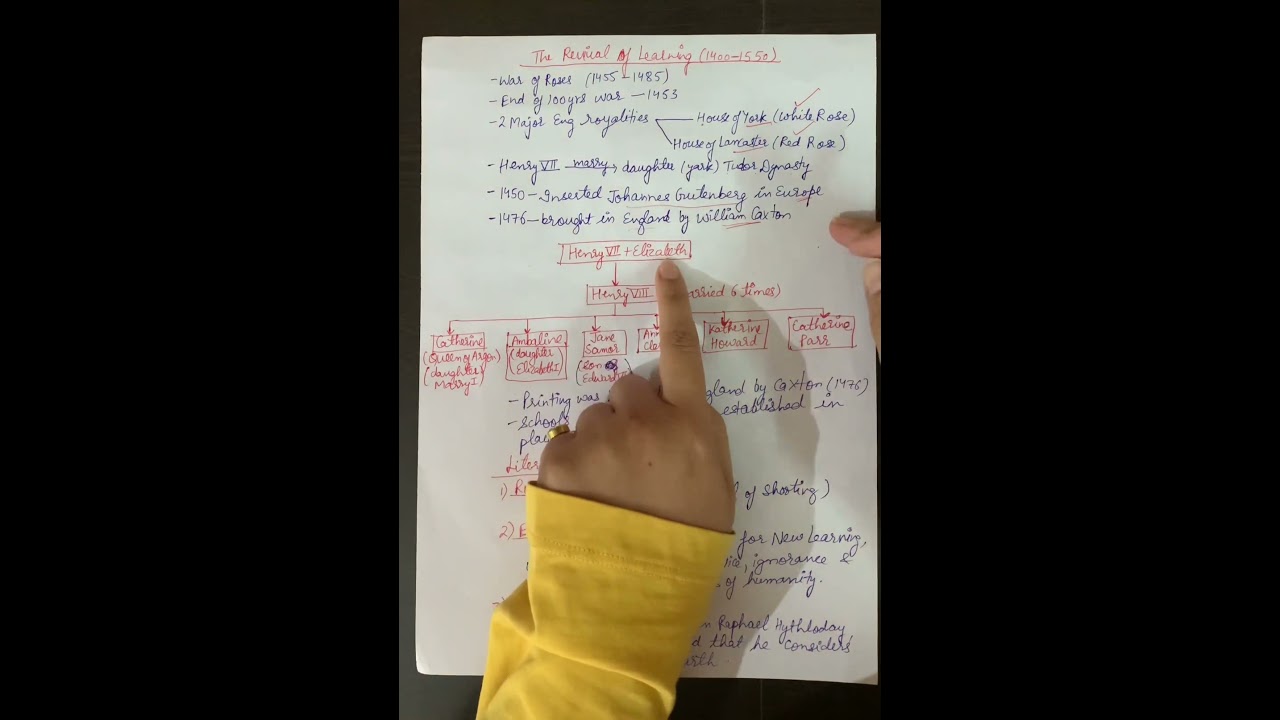 The Revival of Learning (1400-1550)
- War of Roses (1455-1485)
- End of 100yrs war - 1453
- 2 Major Eng royalities House of York (White Rose)
House of Lancaster (Red Rose)
- Henry VII marry daughter (york) Tudor Dynasty
- 1450 - Inserted Johannes Gutenberg in Europe
- 1476 - brought in England by William Caxton
Henry VII + Elizabeth
Henry VIII married 6 times)
Catherine Ambaline Jane Katherine Catherine
(Queen of Argon (daughter Samor Howard Parr
(daughter Elizabeth I) (son
Marry I)
- Printing was England by Caxton (1476)
- School established in
1) of shooting)
2) for New Learning,
ignorance &
of humanity.
Raphael Hythloday
that he considers